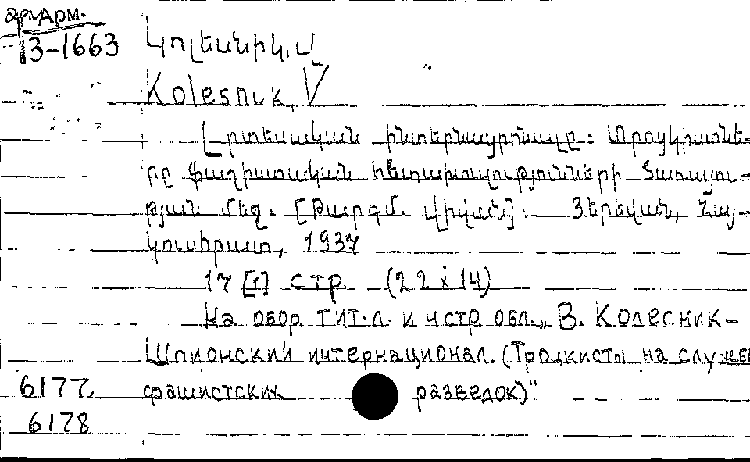 др. Арм.
13-1663 Կոլեսնիկ, Վ
Kolesnik, V
Լրտեսական ինտերնացիոնալը: Տրոցկիստնե-
րը ֆաշիստական հետախուզությունների ծառայու-
թյան մեջ. [Թարգմ. Վիվան]: Յերևան, Հայ-
կուսհրատ, 1937
17 [1] стр (22 x 14)
На обор. тит. л. и 4 стр обл., В. Колесник-
Шпионский интернационал. (Троцкисты на службе
6177, фашистских разведок)"
6178